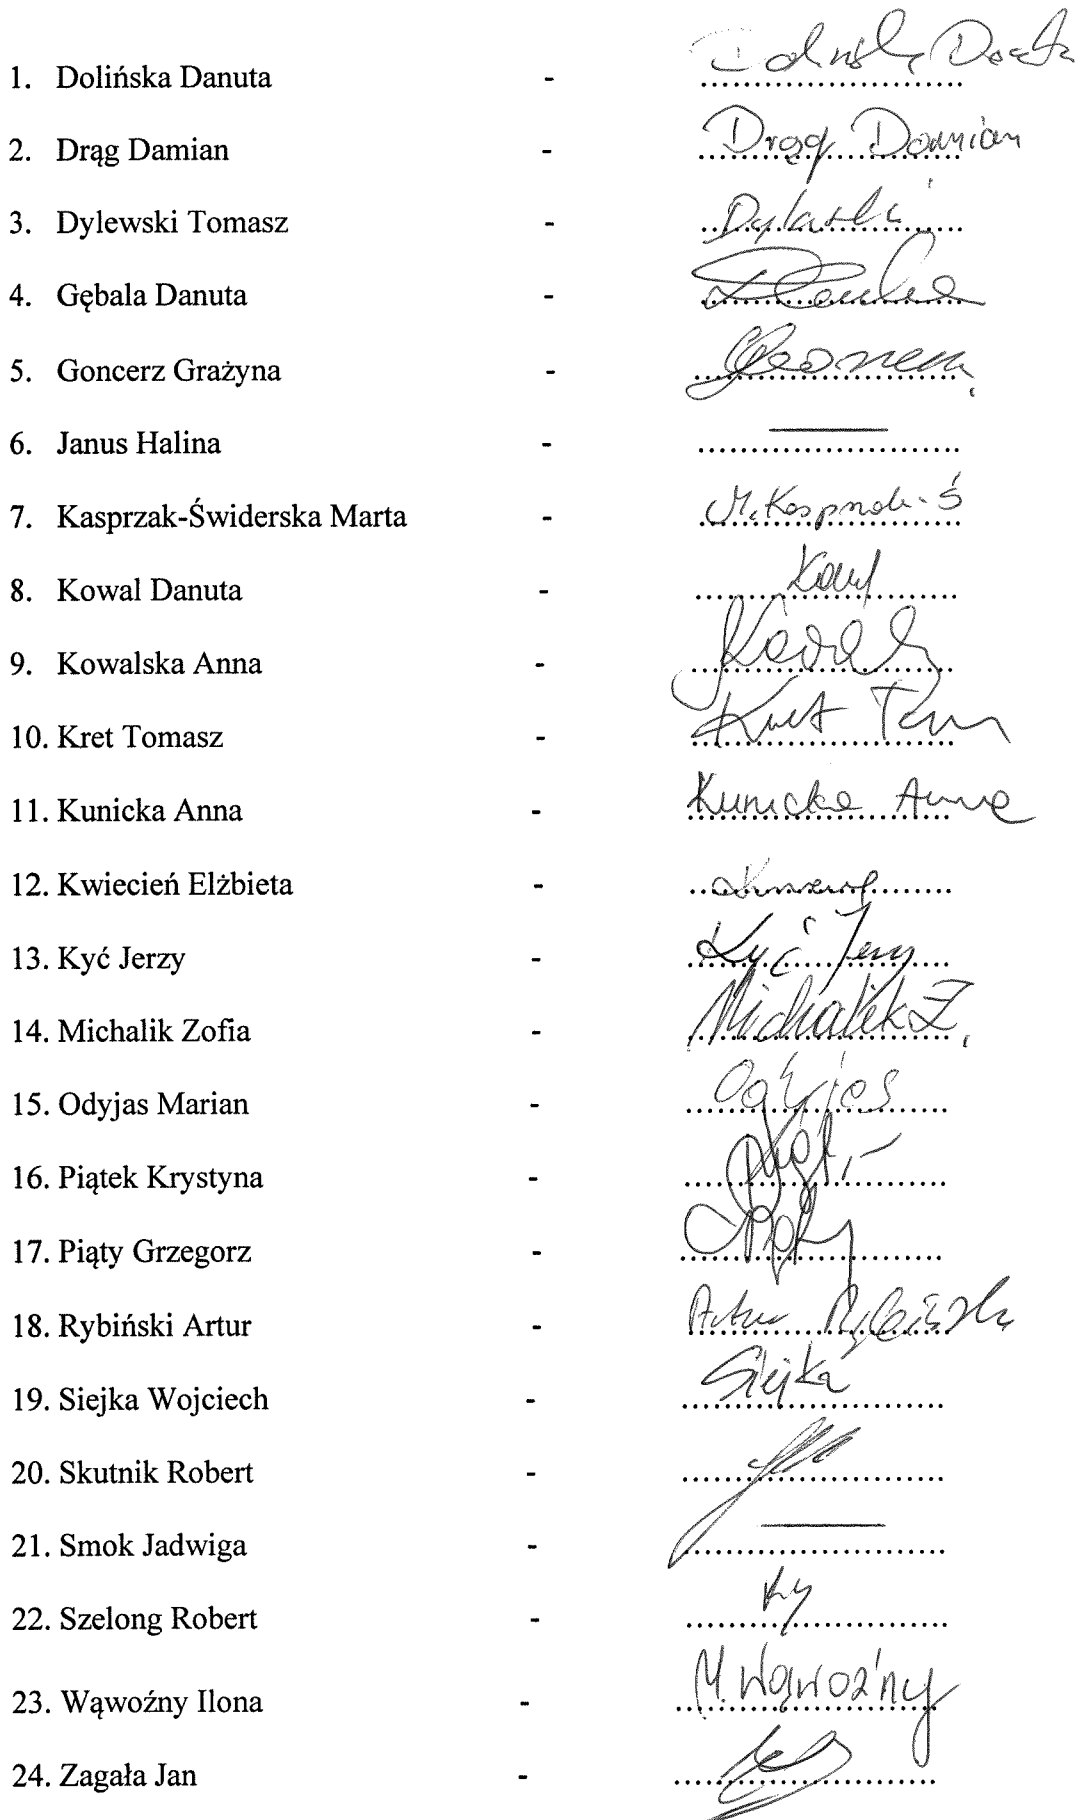 1. Dolińska Danuta - ........................... Dolińska Danuta
2. Drąg Damian - ........................... Drąg Damian
3. Dylewski Tomasz - ...........................
4. Gębala Danuta - ...........................
5. Goncerz Grażyna - ...........................
6. Janus Halina - ...........................
7. Kasprzak-Świderska Marta - ........................... M. Kasprzak-Ś
8. Kowal Danuta - ........................... Kowal
9. Kowalska Anna - ...........................
10. Kret Tomasz - ........................... Kret Tom
11. Kunicka Anna - ........................... Kunicka Anna
12. Kwiecień Elżbieta - ...........................
13. Kyć Jerzy - ........................... Kyć Jerzy
14. Michalik Zofia - ........................... Michalik Z.
15. Odyjas Marian - ........................... Odyjas
16. Piątek Krystyna - ...........................
17. Piąty Grzegorz - ...........................
18. Rybiński Artur - ........................... Artur Rybiński
19. Siejka Wojciech - ........................... Siejka
20. Skutnik Robert - ...........................
21. Smok Jadwiga - ...........................
22. Szelong Robert - ...........................
23. Wąwoźny Ilona - ........................... M. Wąwoźny
24. Zagała Jan - ...........................